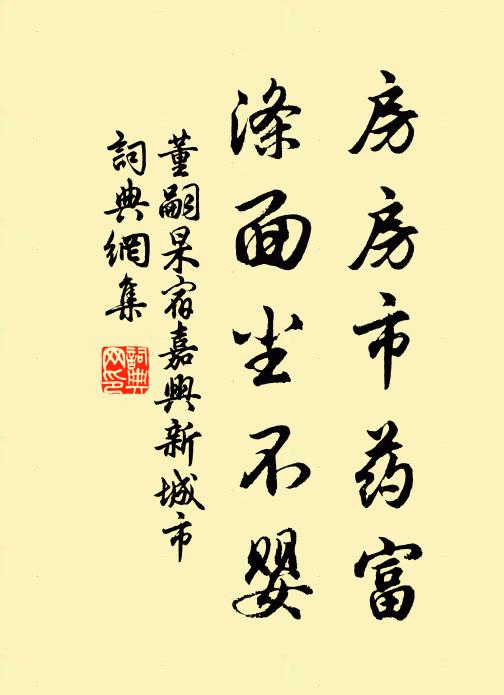 房房市药富
涤面尘不婴
董嗣杲宿嘉興新城市
詞典網集
詞典网印